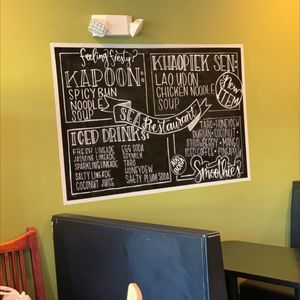 feeling feisty?
KAPOON:
SPICY BUN
NOODLE
SOUP
KHAOPIEK SEN:
LAO UDON
CHICKEN NOODLE
SOUP
NEW
ITEM
SEA
Restaurant
ICED DRINKS
FRESH LIMEADE
JASMINE LIMEADE
SPARKLING LIMEADE
SALTY LIMEADE
COCONUT JUICE
EGG SODA
SOYMILK
TARO
HONEYDEW
SALTY PLUM SODA
TARO • HONEYDEW
DURIAN • COCONUT
STRAWBERRY • MANGO
ICED COFFEE • PINEAPPLE
Smoothies